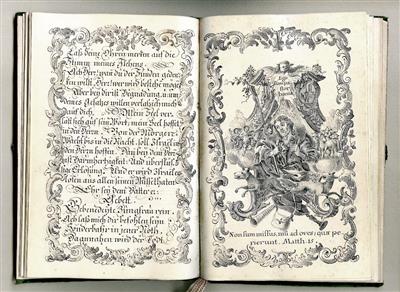 Laß deine Ohren merken auf die
Stimm meines Flehens.
Ach Herr! wan du der Sünden geden-
cken willt, Herr! wer wird bestehē möge?
Aber bey dir ist Begnadung, u: um
deines Gesatzes willen verlaß ich mich
auf dich, Meine Seel ver-
laßt sich auf sein Wort: mein Seel hoffet
in den Herrn. Von der Morgen-
Wacht bis in die Nacht, soll Israel in
den Herrn hoffen. Dan bey dē Herrn
ist Barmhertzigkeit: Und überflüssi-
ge Erlösung. Und er wird Israel er-
lösen aus allen seinen Missethaten.
Ehr sey dem Vatter etc.
Gebett.
Gebenedeyte Jungfrau rein,
Ach laß mich dir befohlen seyn
Sonderbahr in jener Noth
Da gnahen wird der Todt.
Non sum missus, nisi ad oves, quæ pe-
rierunt. Matth. 15.